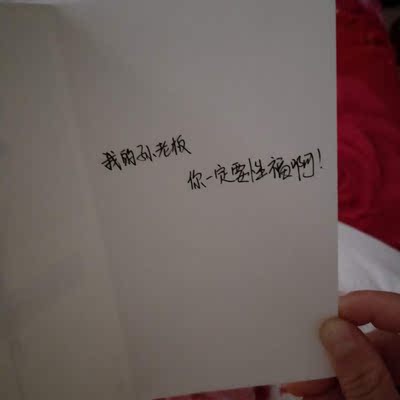 我的孙老板
你一定要性福啊！